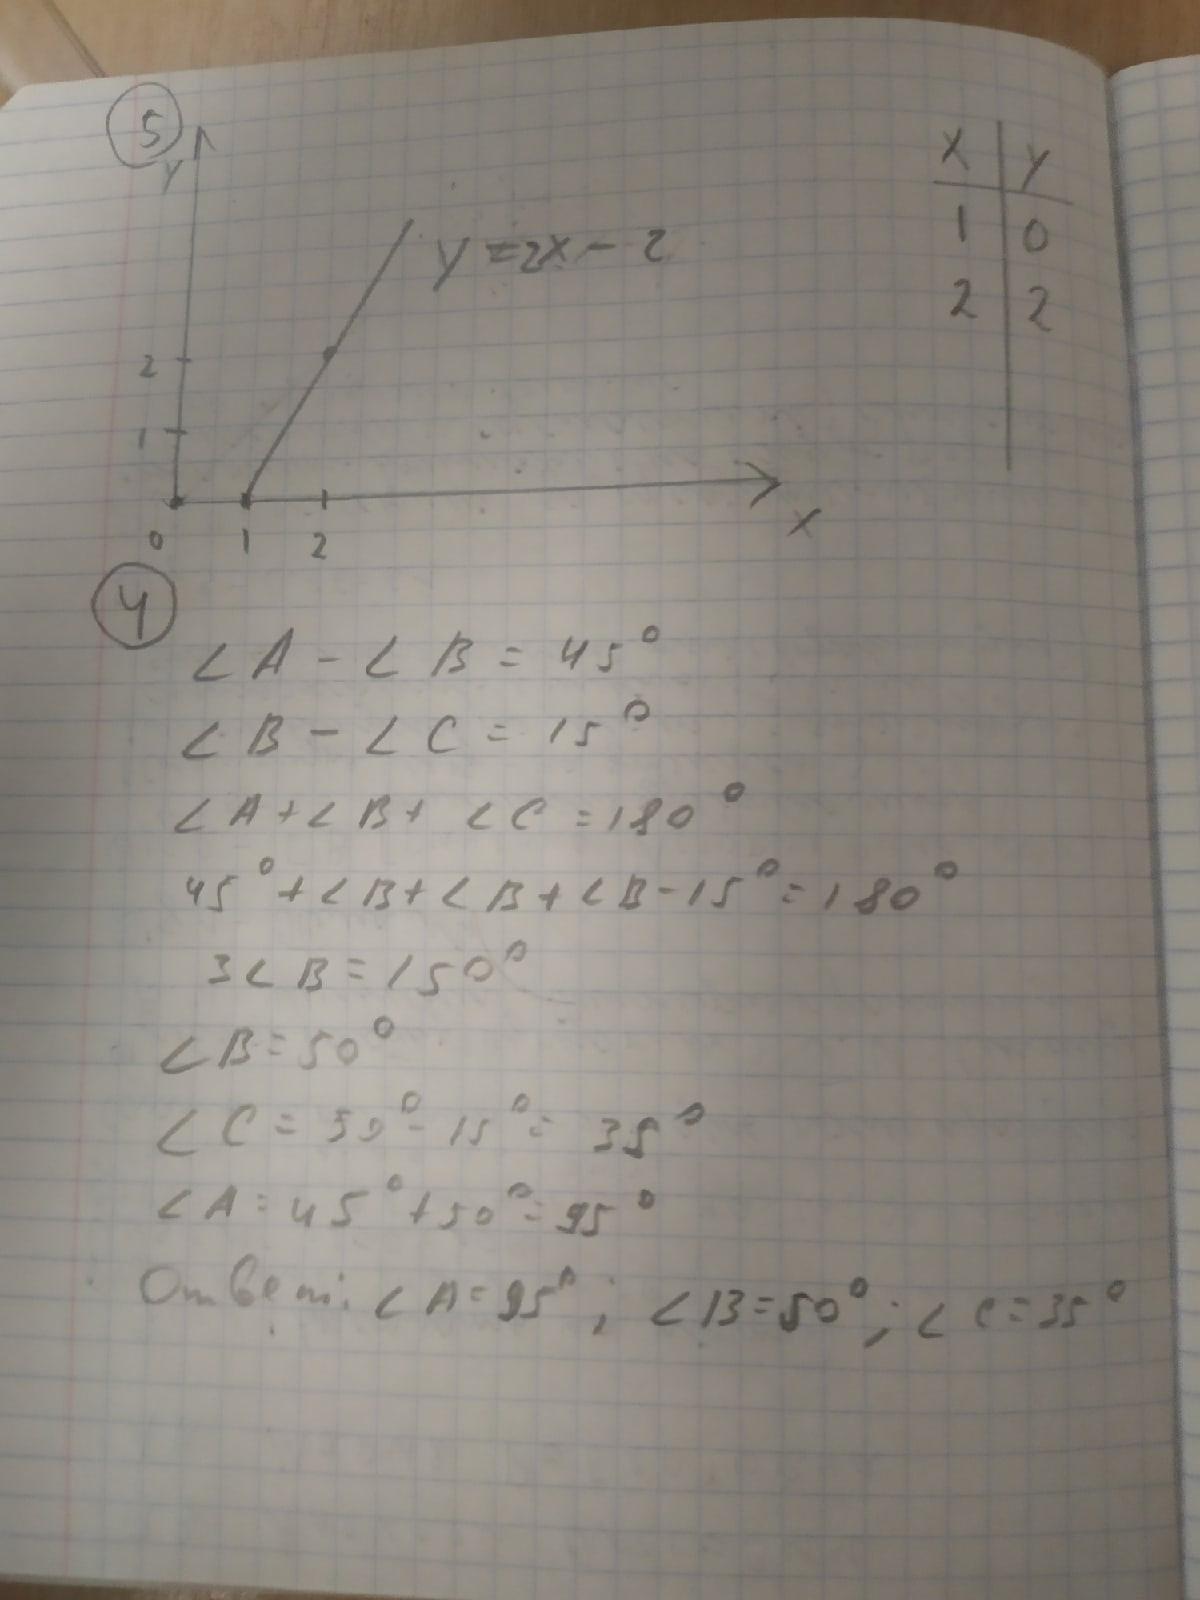 5
y
y = 2x - 2
x | y
1 | 0
2 | 2
2
1
0 1 2
x
4
∠A - ∠B = 45°
∠B - ∠C = 15°
∠A + ∠B + ∠C = 180°
45° + ∠B + ∠B + ∠B - 15° = 180°
3∠B = 150°
∠B = 50°
∠C = 50° - 15° = 35°
∠A = 45° + 50° = 95°
Ответ: ∠A = 95°; ∠B = 50°; ∠C = 35°